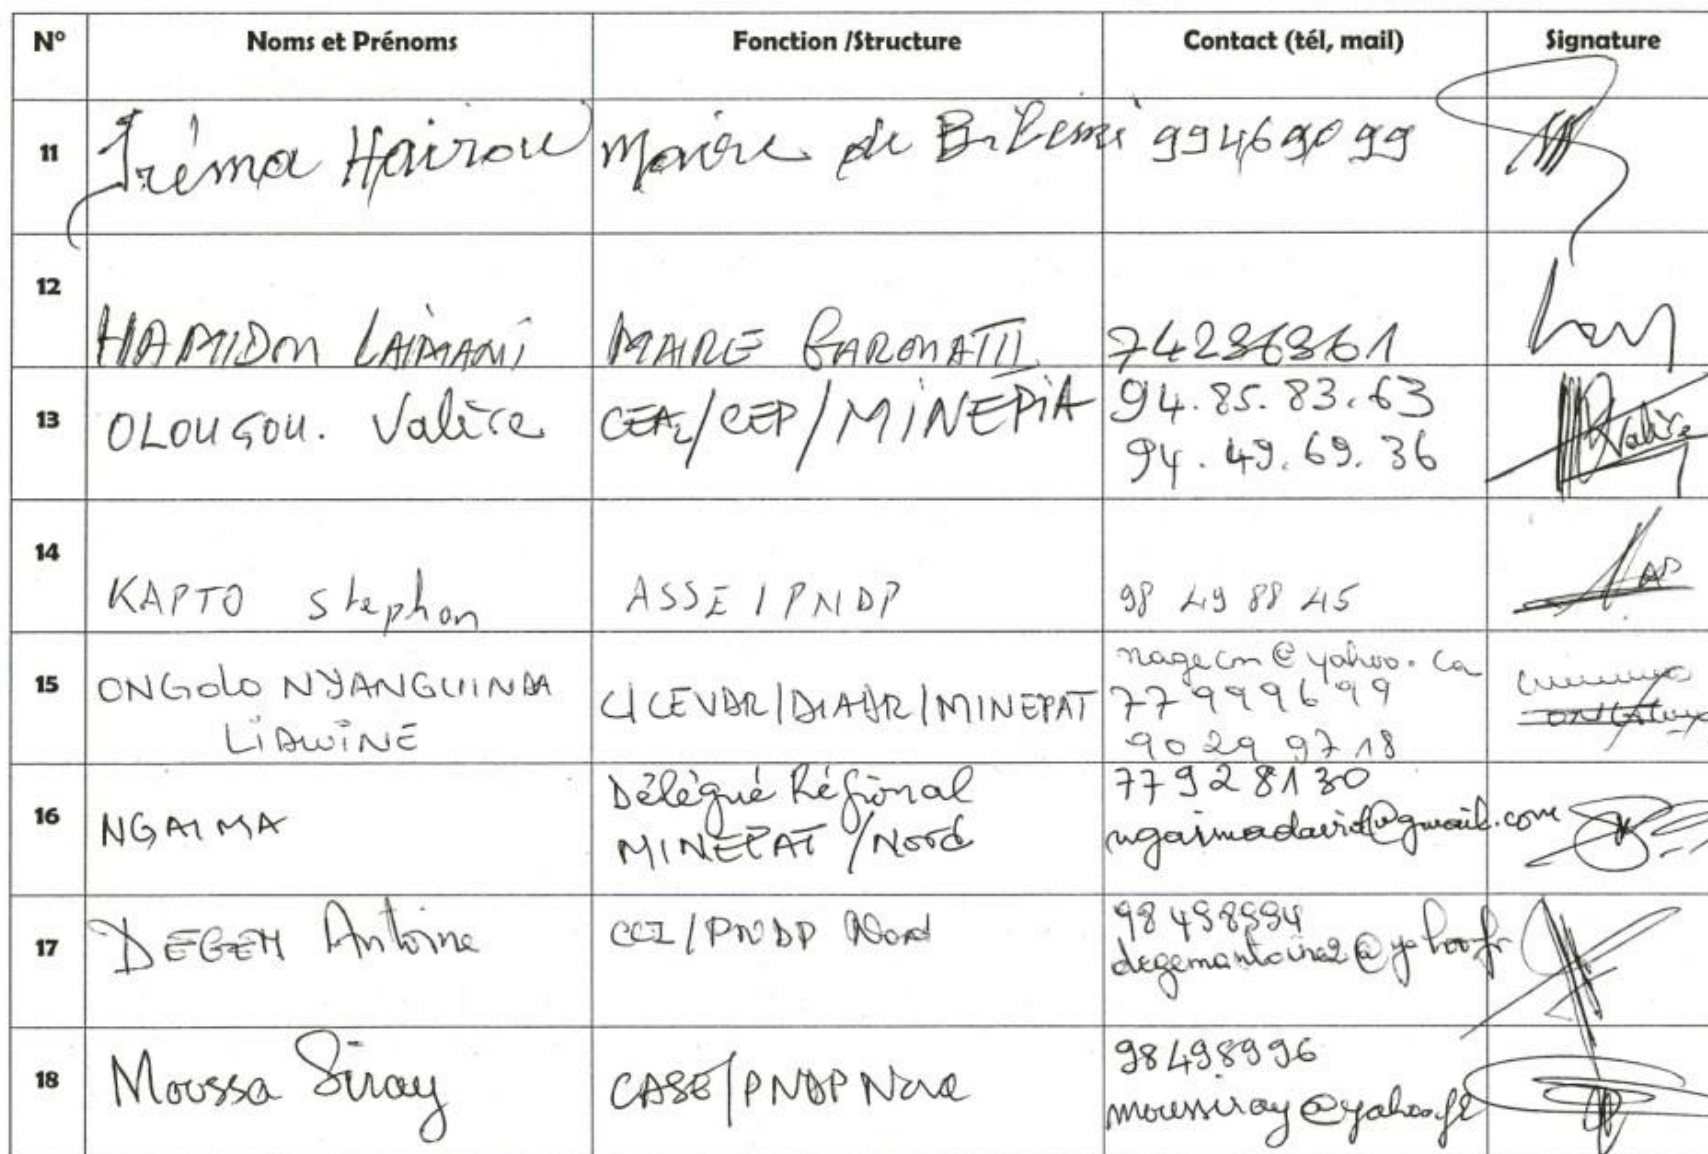 N° Noms et Prénoms Fonction /Structure Contact (tél, mail) Signature
11 Iréma Hairou Maire de 99469099
12 HAMIDOU LAIMANI MAIRE GAROUA III 74236361
13 OLOUGOU. Valère /CEP/MINEPIA 94.85.83.63
94.49.69.36
Valère
14 KAPTO Stephan ASSE/PNDP 98 49 88 45
15 ONGOLO NYANGUINDA
LIDWINE
C/CEVDR/DIADR/MINEPAT
nagecm@yahoo.ca
77 99 96 99
90 29 97 18
16 NGAIMA
Délégué Régional
MINEPAT/Nord
77928130
ngaimadavid@gmail.com
17 DEGEM Antoine CCI/PNDP Nord
98498994
degemantoine2@yahoo.fr
18 Moussa Siray CASE/PNDP Nord
98498996
moussiray@yahoo.fr